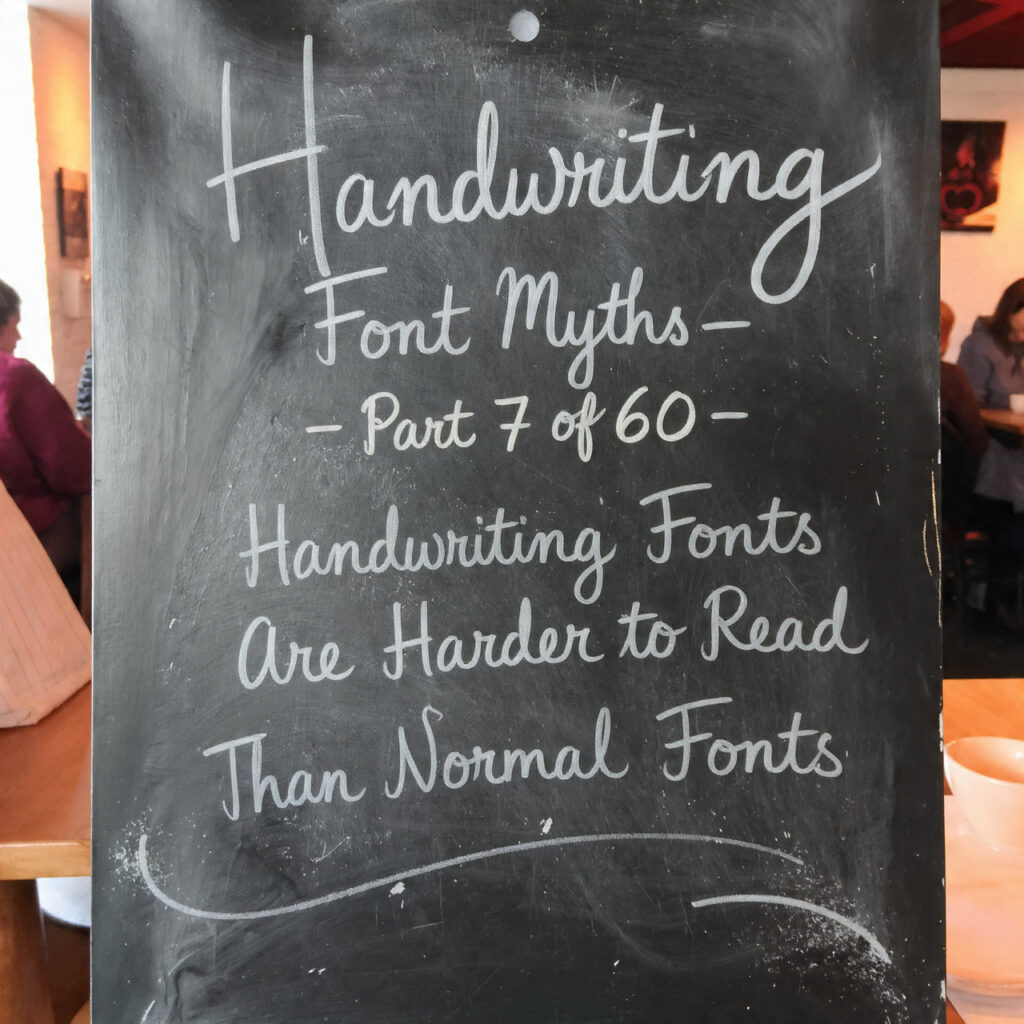 Handwriting
Font Myths –
– Part 7 of 60 –
Handwriting Fonts
Are Harder to Read
Than Normal Fonts